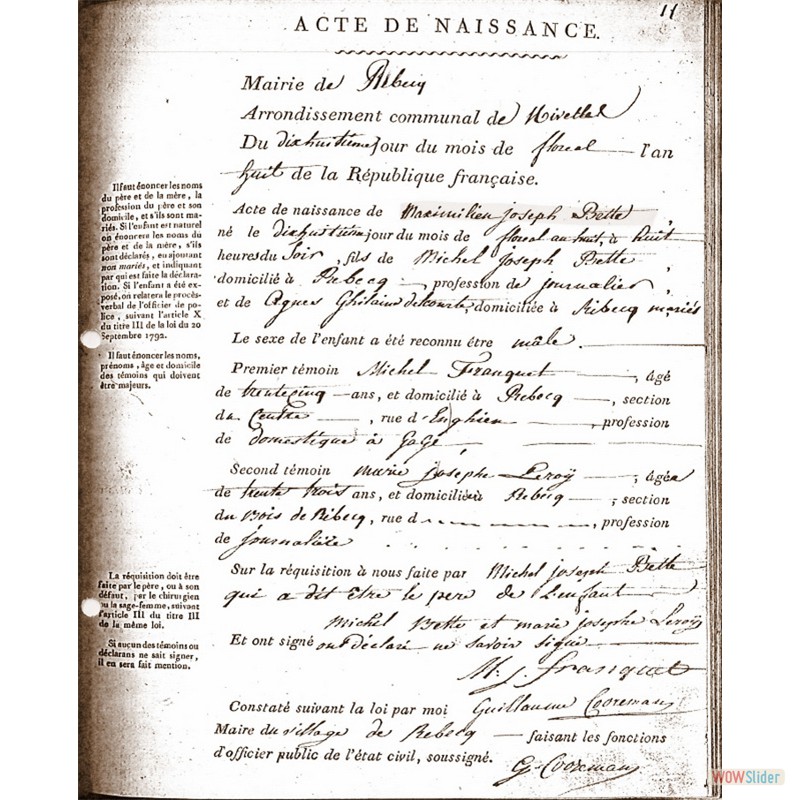 11
ACTE DE NAISSANCE.
Mairie de Rebecq
Arrondissement communal de Nivelles
Du dixhuitieme jour du mois de floreal l'an
huit de la République française.
Il faut énoncer les noms
du père et de la mère, la
profession du père et son
domicile, et s'ils sont ma-
riés. Si l'enfant est naturel
on énoncera les noms du
père et de la mère, s'ils
sont déclarés, en ajoutant
non mariés, et indiquant
par qui est faite la déclara-
tion. Si l'enfant a été ex-
posé, on relatera le procès-
verbal de l'officier de po-
lice, suivant l'article X
du titre III de la loi du 20
Septembre 1792.
Il faut énoncer les noms,
prénoms, âge et domicile
des témoins qui doivent
être majeurs.
Acte de naissance de Maximilien joseph Bette,
né le dixhuitieme jour du mois de floreal an huit, à huit
heures du Soir, fils de Michel joseph Bette,
domicilié à Rebecq, profession de journalier,
et de Agnes Ghilaine , domiciliée à Rebecq mariés
Le sexe de l'enfant a été reconnu être mâle.
Premier témoin Michel Franquet, âgé
de trentecinq ans, et domicilié à Rebecq, section
du Centre, rue d'Enghien, profession
de domestique à Gagé
Second témoin marie josephe Leroÿ, âgée
de trente trois ans, et domiciliée à Rebecq, section
du Bois de Rebecq, rue d, profession
de journaliere
La réquisition doit être
faite par le père, ou à son
défaut, par le chirurgien
ou la sage-femme, suivant
l'article III du titre III
de la même loi.
Si aucun des témoins ou
déclarans ne sait signer,
il en sera fait mention.
Sur la réquisition à nous faite par Michel joseph Bette
qui a dit être le pere de l'enfant
Michel Bette et marie josephe Leroÿ
Et ont signé ont déclaré ne savoir signe
M. j. franquet
Constaté suivant la loi par moi Guillaume Cooremans
Maire du village de Rebecq faisant les fonctions
d'officier public de l'état civil, soussigné.
G. Cooremans
WOWSlider